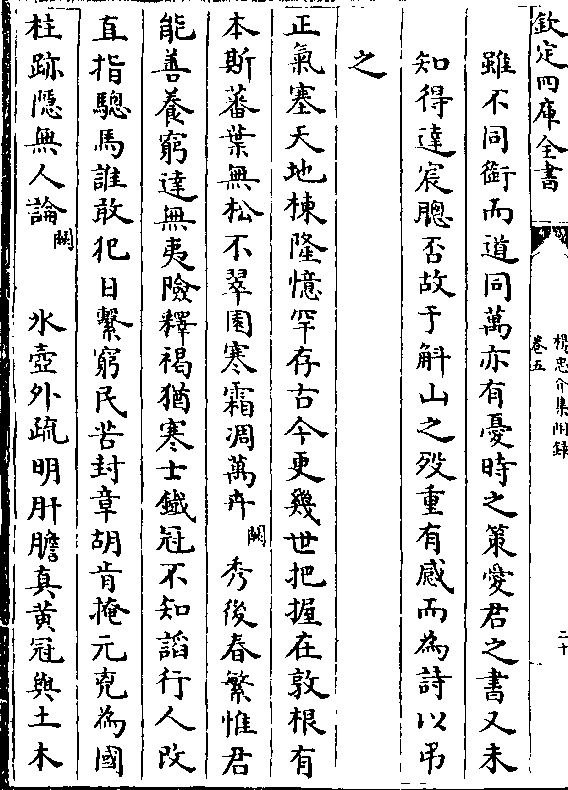 欽定四庫全書
楊忠介集附錄
卷五
二十
雖不同銜而道同萬亦有憂時之策愛君之書又未
知得達宸聰否故于斛山之殁重有感而為詩以弔
之
正氣塞天地棟隆憶罕存古今更幾世把握在敦根有
本斯蕃葉無松不翠園寒霜凋萬卉闕秀後春繁惟君
能善養窮達無夷險釋褐猶寒士鐵冠不知謟行人改
直指驄馬誰敢犯日繫窮民苦封章胡肯掩元兇為國
柱跡隱無人論闕 氷壺外疏明肝膽真黄冠與土木